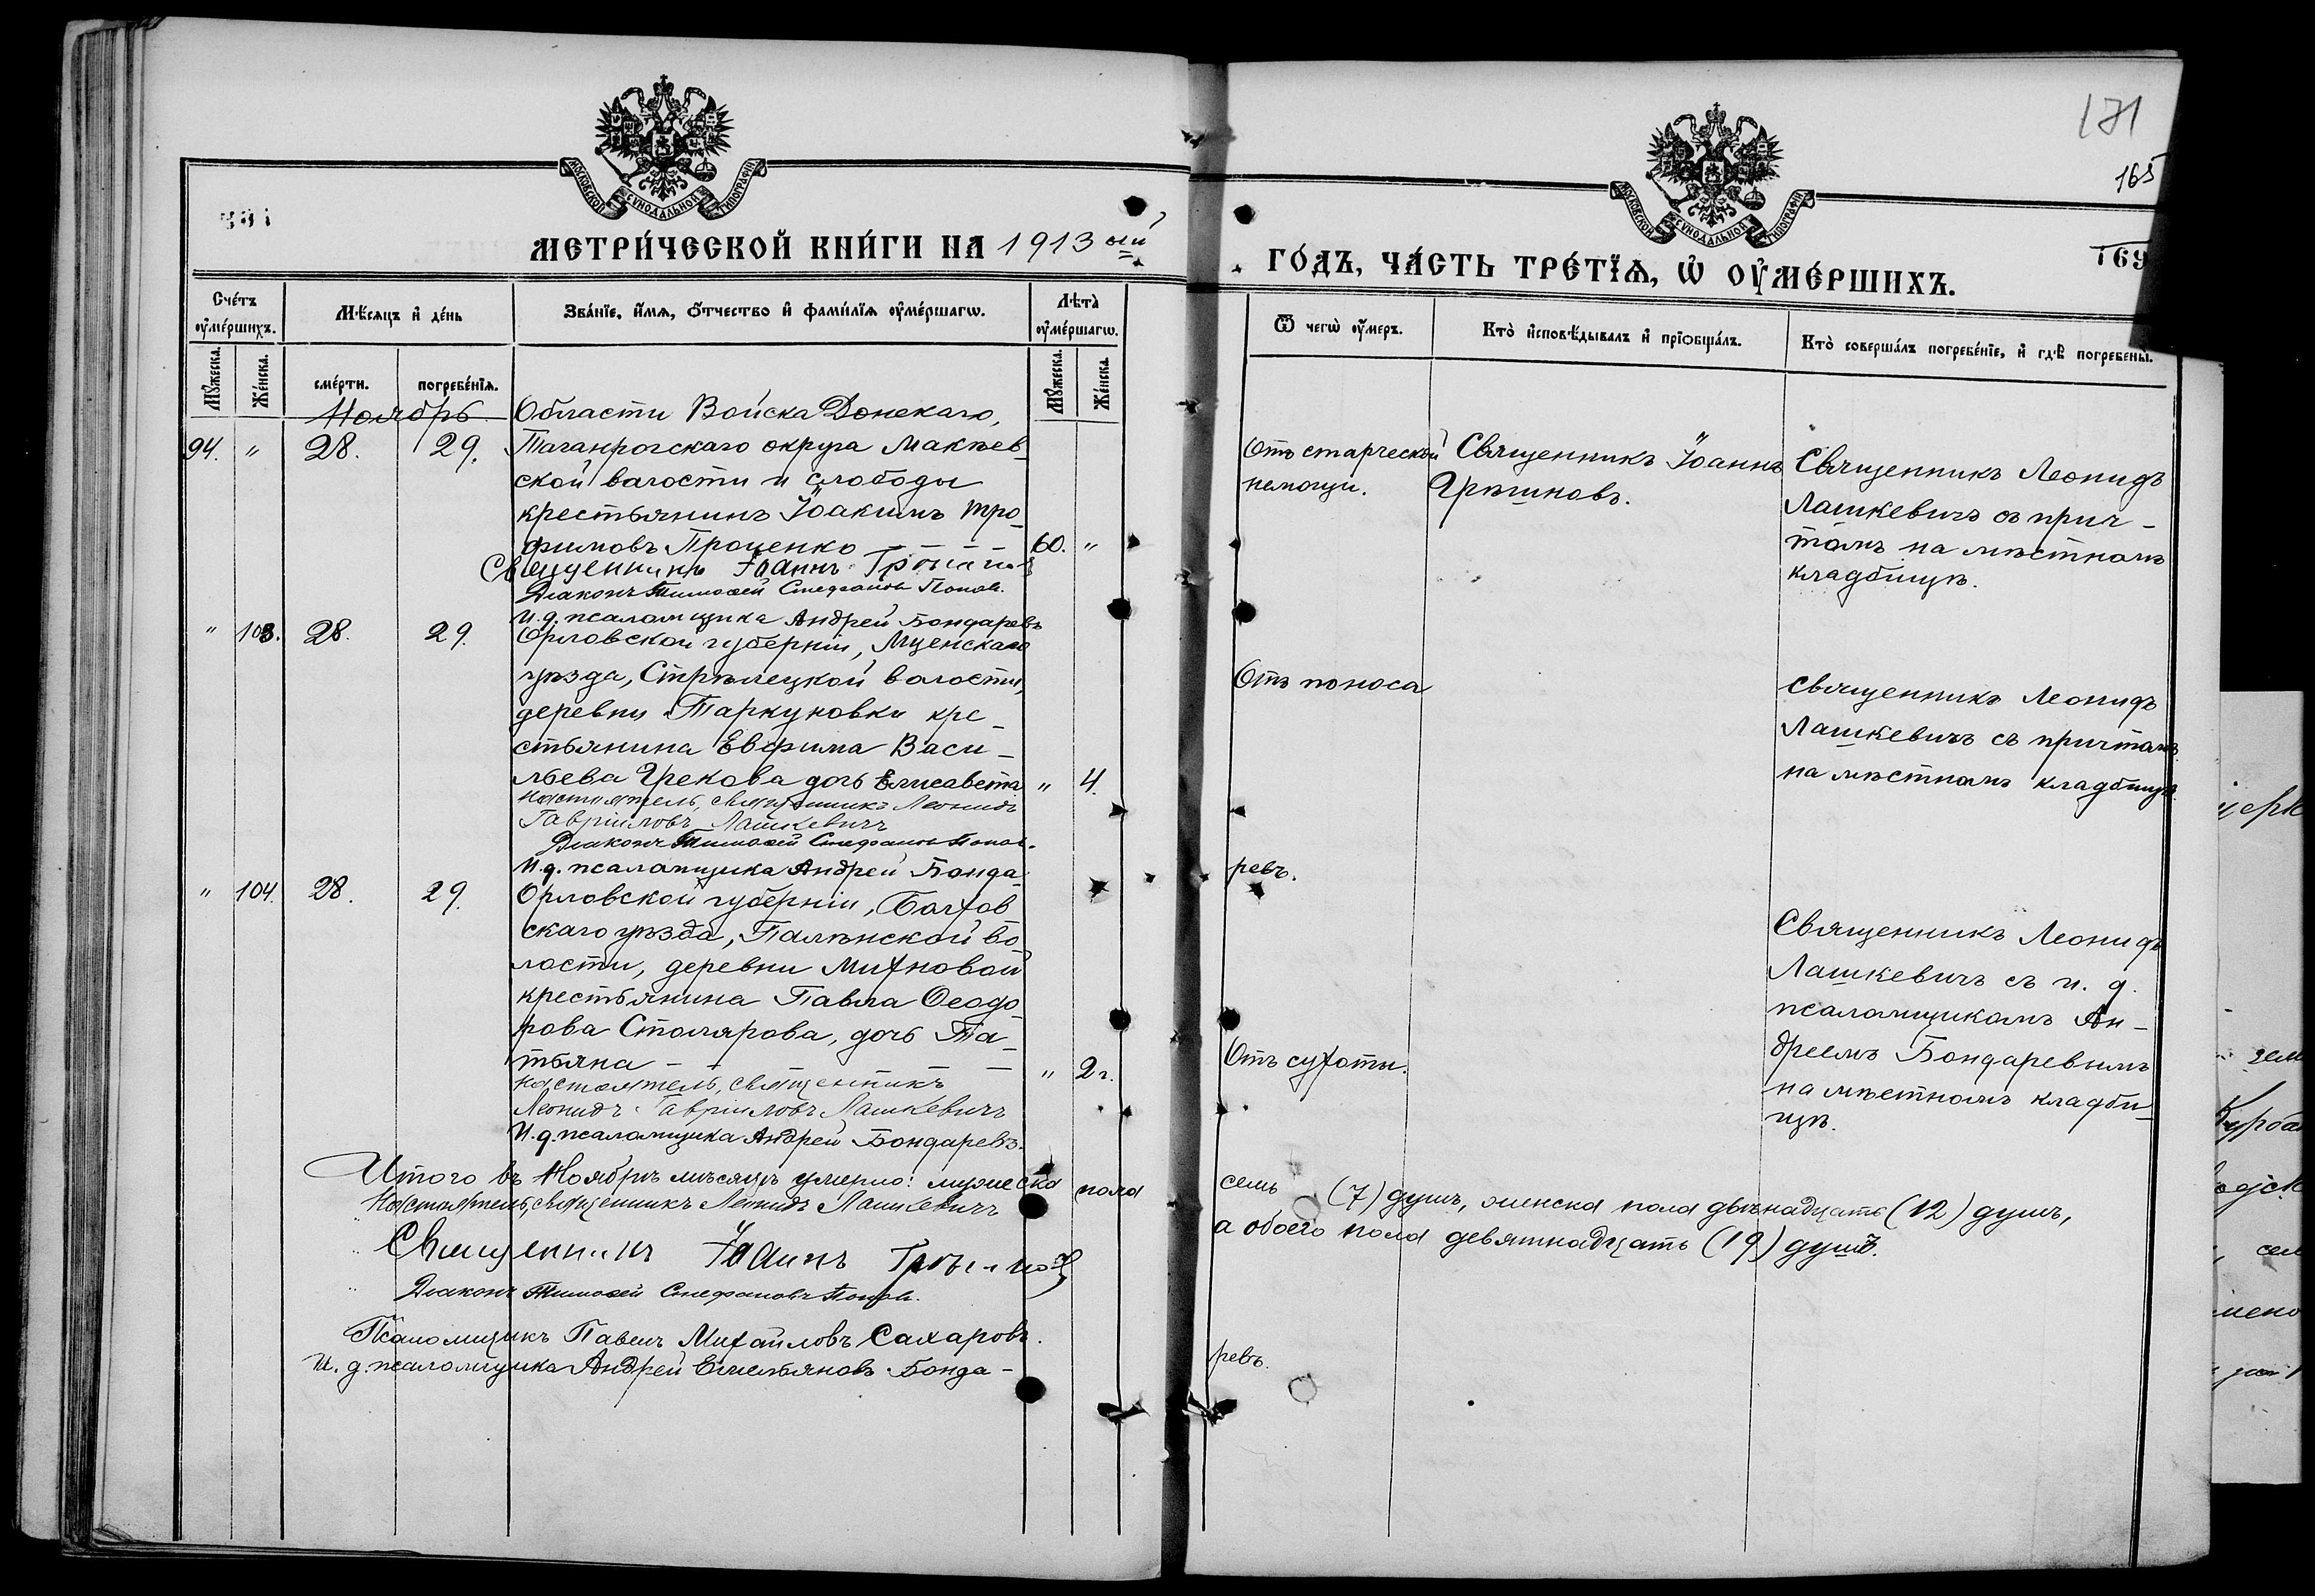 171
165
169
МОСКОВСКОЙ СѴНОДАЛЬНОЙ ТИПОГРАФІИ
МОСКОВСКОЙ СѴНОДАЛЬНОЙ ТИПОГРАФІИ
МЕТРИ́ЧЕСКОЙ КНИ́ГИ НА 1913 ый
ГО́ДЪ, ЧА́СТЬ ТРЕ́ТЇѦ, Ѡ҆ ОУ҆МЕ́РШИХЪ.
Сче́тъ оу҆ме́ршихъ.
Мѣ́сѧцъ и҆ де́нь
Зва́нїе, и҆́мѧ, ѻ҆́тчество и҆ фами́лїѧ оу҆ме́ршагѡ.
Лѣта̀ оу҆ме́ршагѡ.
Ѿ чегѡ̀ оу҆́меръ.
Кто̀ и҆сповѣ́дывалъ и҆ прїѻбща́лъ.
Кто̀ соверша́лъ погребе́нїе, и҆ гдѣ̀ погребены̀.
Мꙋ́жеска.
Же́нска.
сме́рти.
погребе́нїѧ.
Мꙋ́жеска.
Же́нска.
Ноябрь
Области Войска Донскаго,
94. " 28. 29. Таганрогскаго округа Макѣев
ской волости и слободы
крестьянинъ Іоакимъ Тро
фимовъ Проценко 60. "
Священникъ Іоаннъ
Діаконъ Тимоѳей Стефановъ Поповъ.
И. д. псаломщика Андрей Бондаревъ
Отъ старческой
немощи.
Священникъ Іоаннъ
Грѣшновъ.
Священникъ Леонидъ
Лашкевичъ съ прич-
томъ на мѣстномъ
кладбищѣ.
" 103. 28. 29. Орловской губерніи, Мценскаго
уѣзда, Стрѣлецкой волости,
деревни Таркуновки кре-
стьянина Евфима Васи-
льева Грекова дочь Елисавета " 4.
Настоятель, священникъ Леонидъ
Гавріиловъ Лашкевичъ
Діаконъ Тимоѳей Стефановъ Поповъ.
И. д. псаломщика Андрей Бонда-
ревъ.
Отъ поноса
Священникъ Леонидъ
Лашкевичъ съ причтомъ
на мѣстномъ кладбищѣ.
" 104. 28. 29. Орловской губерніи, Болхов
скаго уѣзда, Палѣнской во
лости, деревни Михновой
крестьянина Павла Ѳеодо
рова Столярова, дочь Та-
тьяна " 2 г.
Настоятель, священникъ
Леонидъ Гавріиловъ Лашкевичъ
И. д. псаломщика Андрей Бондаревъ.
Отъ сухоты.
Священникъ Леонидъ
Лашкевичъ съ и. д.
псаломщикомъ Ан-
дреемъ Бондаревымъ
на мѣстномъ кладби-
щѣ.
Итого въ Ноябрѣ мѣсяцѣ умерло: мужеска пола семь (7) душъ, женска пола двѣнадцать (12) душъ,
а обоего пола девятнадцать (19) душъ.
Настоятель, священникъ Леонидъ Лашкевичъ
Священникъ Іоаннъ Грѣшновъ
Діаконъ Тимоѳей Стефановъ Поповъ.
Псаломщикъ Павелъ Михайловъ Сахаровъ.
И. д. псаломщика Андрей Емельяновъ Бонда-
ревъ.